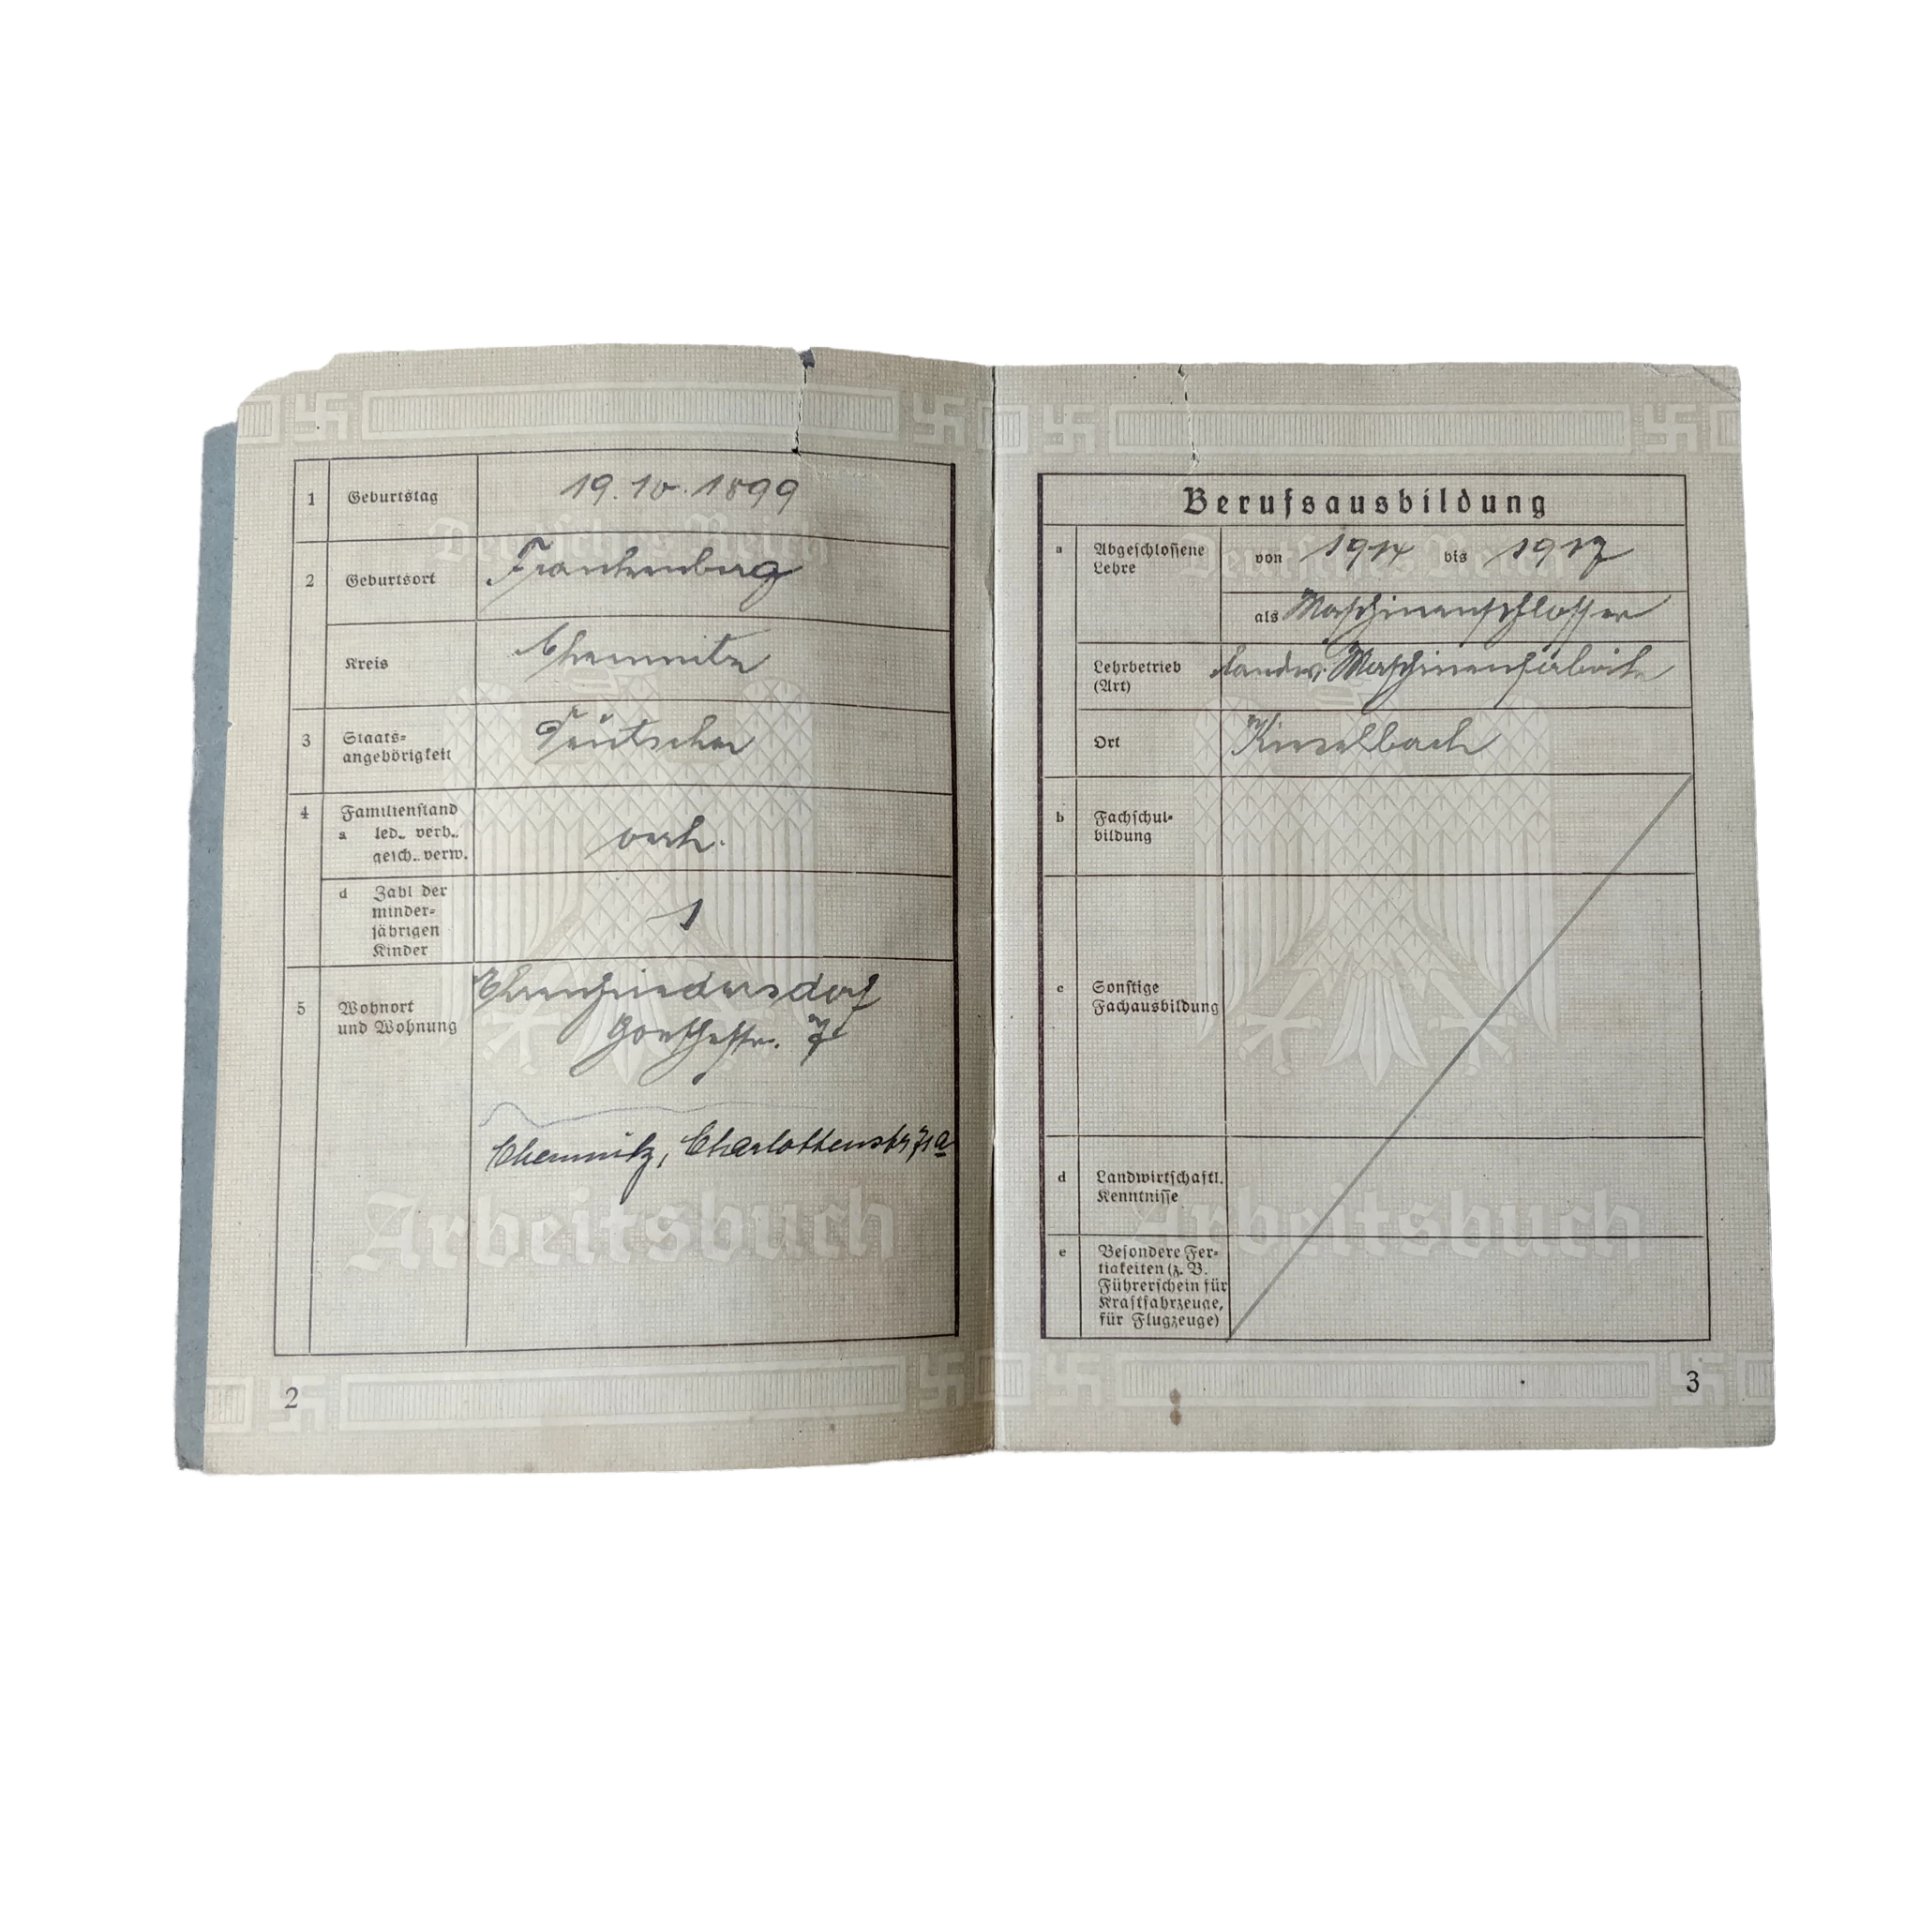 Deutsches Reich
1 Geburtstag 19.10.1899
2 Geburtsort Frankenberg
Kreis Chemnitz
3 Staats-
angehörigkeit Deutscher
4 Familienstand
a led., verh.,
gesch., verw. verh.
d Zahl der
minder-
jährigen
Kinder 1
5 Wohnort
und Wohnung
Ehrenfriedersdorf
Goethestr. 7
Chemnitz, Charlottenstr 71a
Arbeitsbuch
2
Berufsausbildung
Deutsches Reich
a Abgeschlossene
Lehre von 1914 bis 1917
als Maschinenschlosser
Lehrbetrieb
(Art) Landw. Maschinenfabrik
Ort
b Fachschul-
bildung
c Sonstige
Fachausbildung
d Landwirtschaftl.
Kenntnisse
Arbeitsbuch
e Besondere Fer-
tigkeiten (z. B.
Führerschein für
Kraftfahrzeuge,
für Flugzeuge)
3